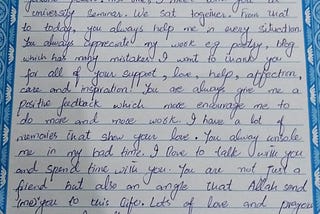 university seminar. We sat together. From that
to today, you always help me in every situation.
You always appreciate my work e.g poetry, blog
which has many mistakes. I want to thank you
for all of your support, love, help, affection,
care and inspiration. You are always give me a
positive feedback which more encourage me to
do more and more work. I have a lot of
memories that show your love. You alway console
me in my bad time. I love to talk with you
and spend time with you. You are not just a
friend but also an angle that Allah send
you to this life. Lots of love and prayers